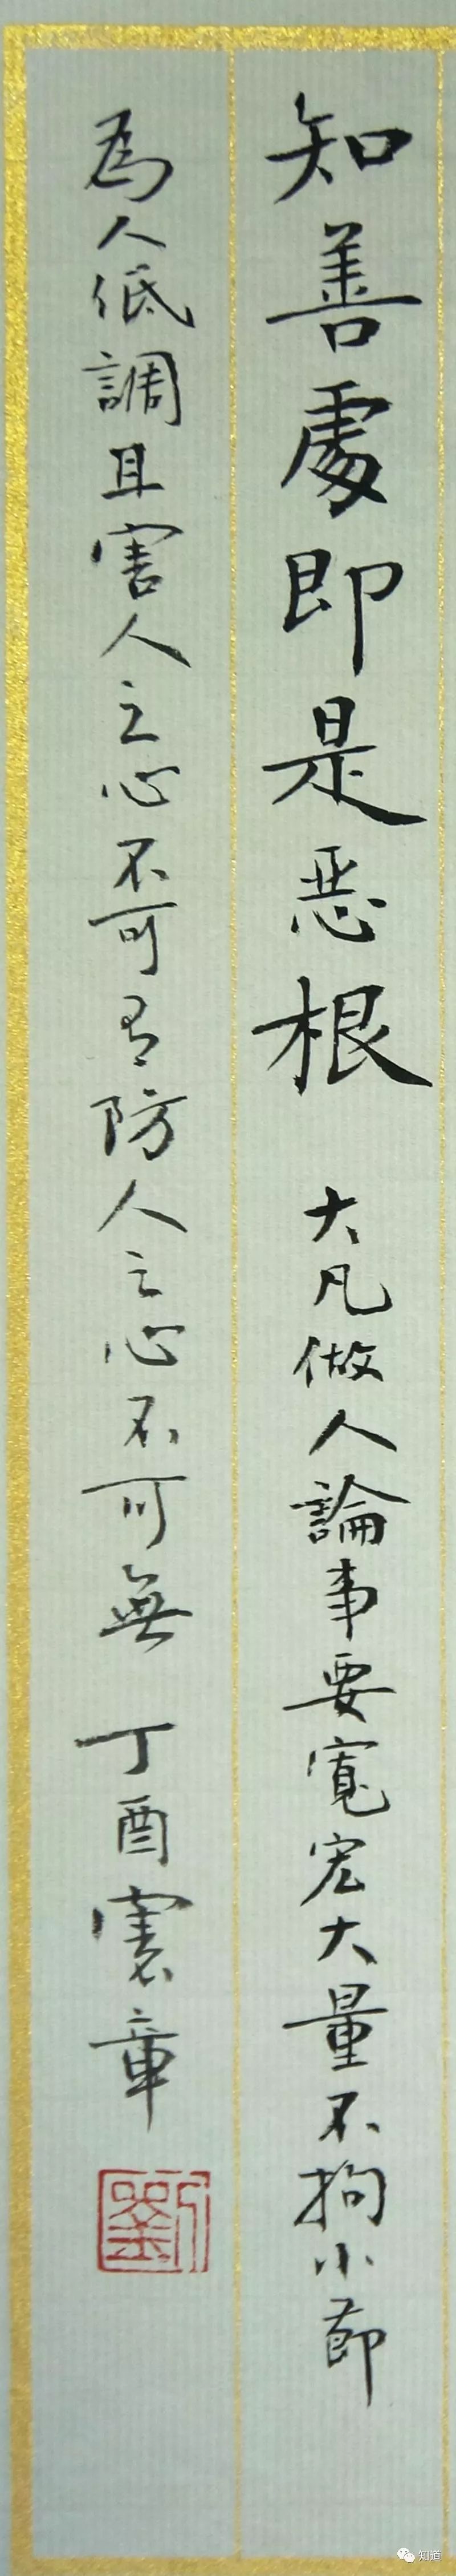 知善處即是惡根 大凡做人論事要寬宏大量不拘小節
為人低調且害人之心不可有防人之心不可無 丁酉 章
劉
知道